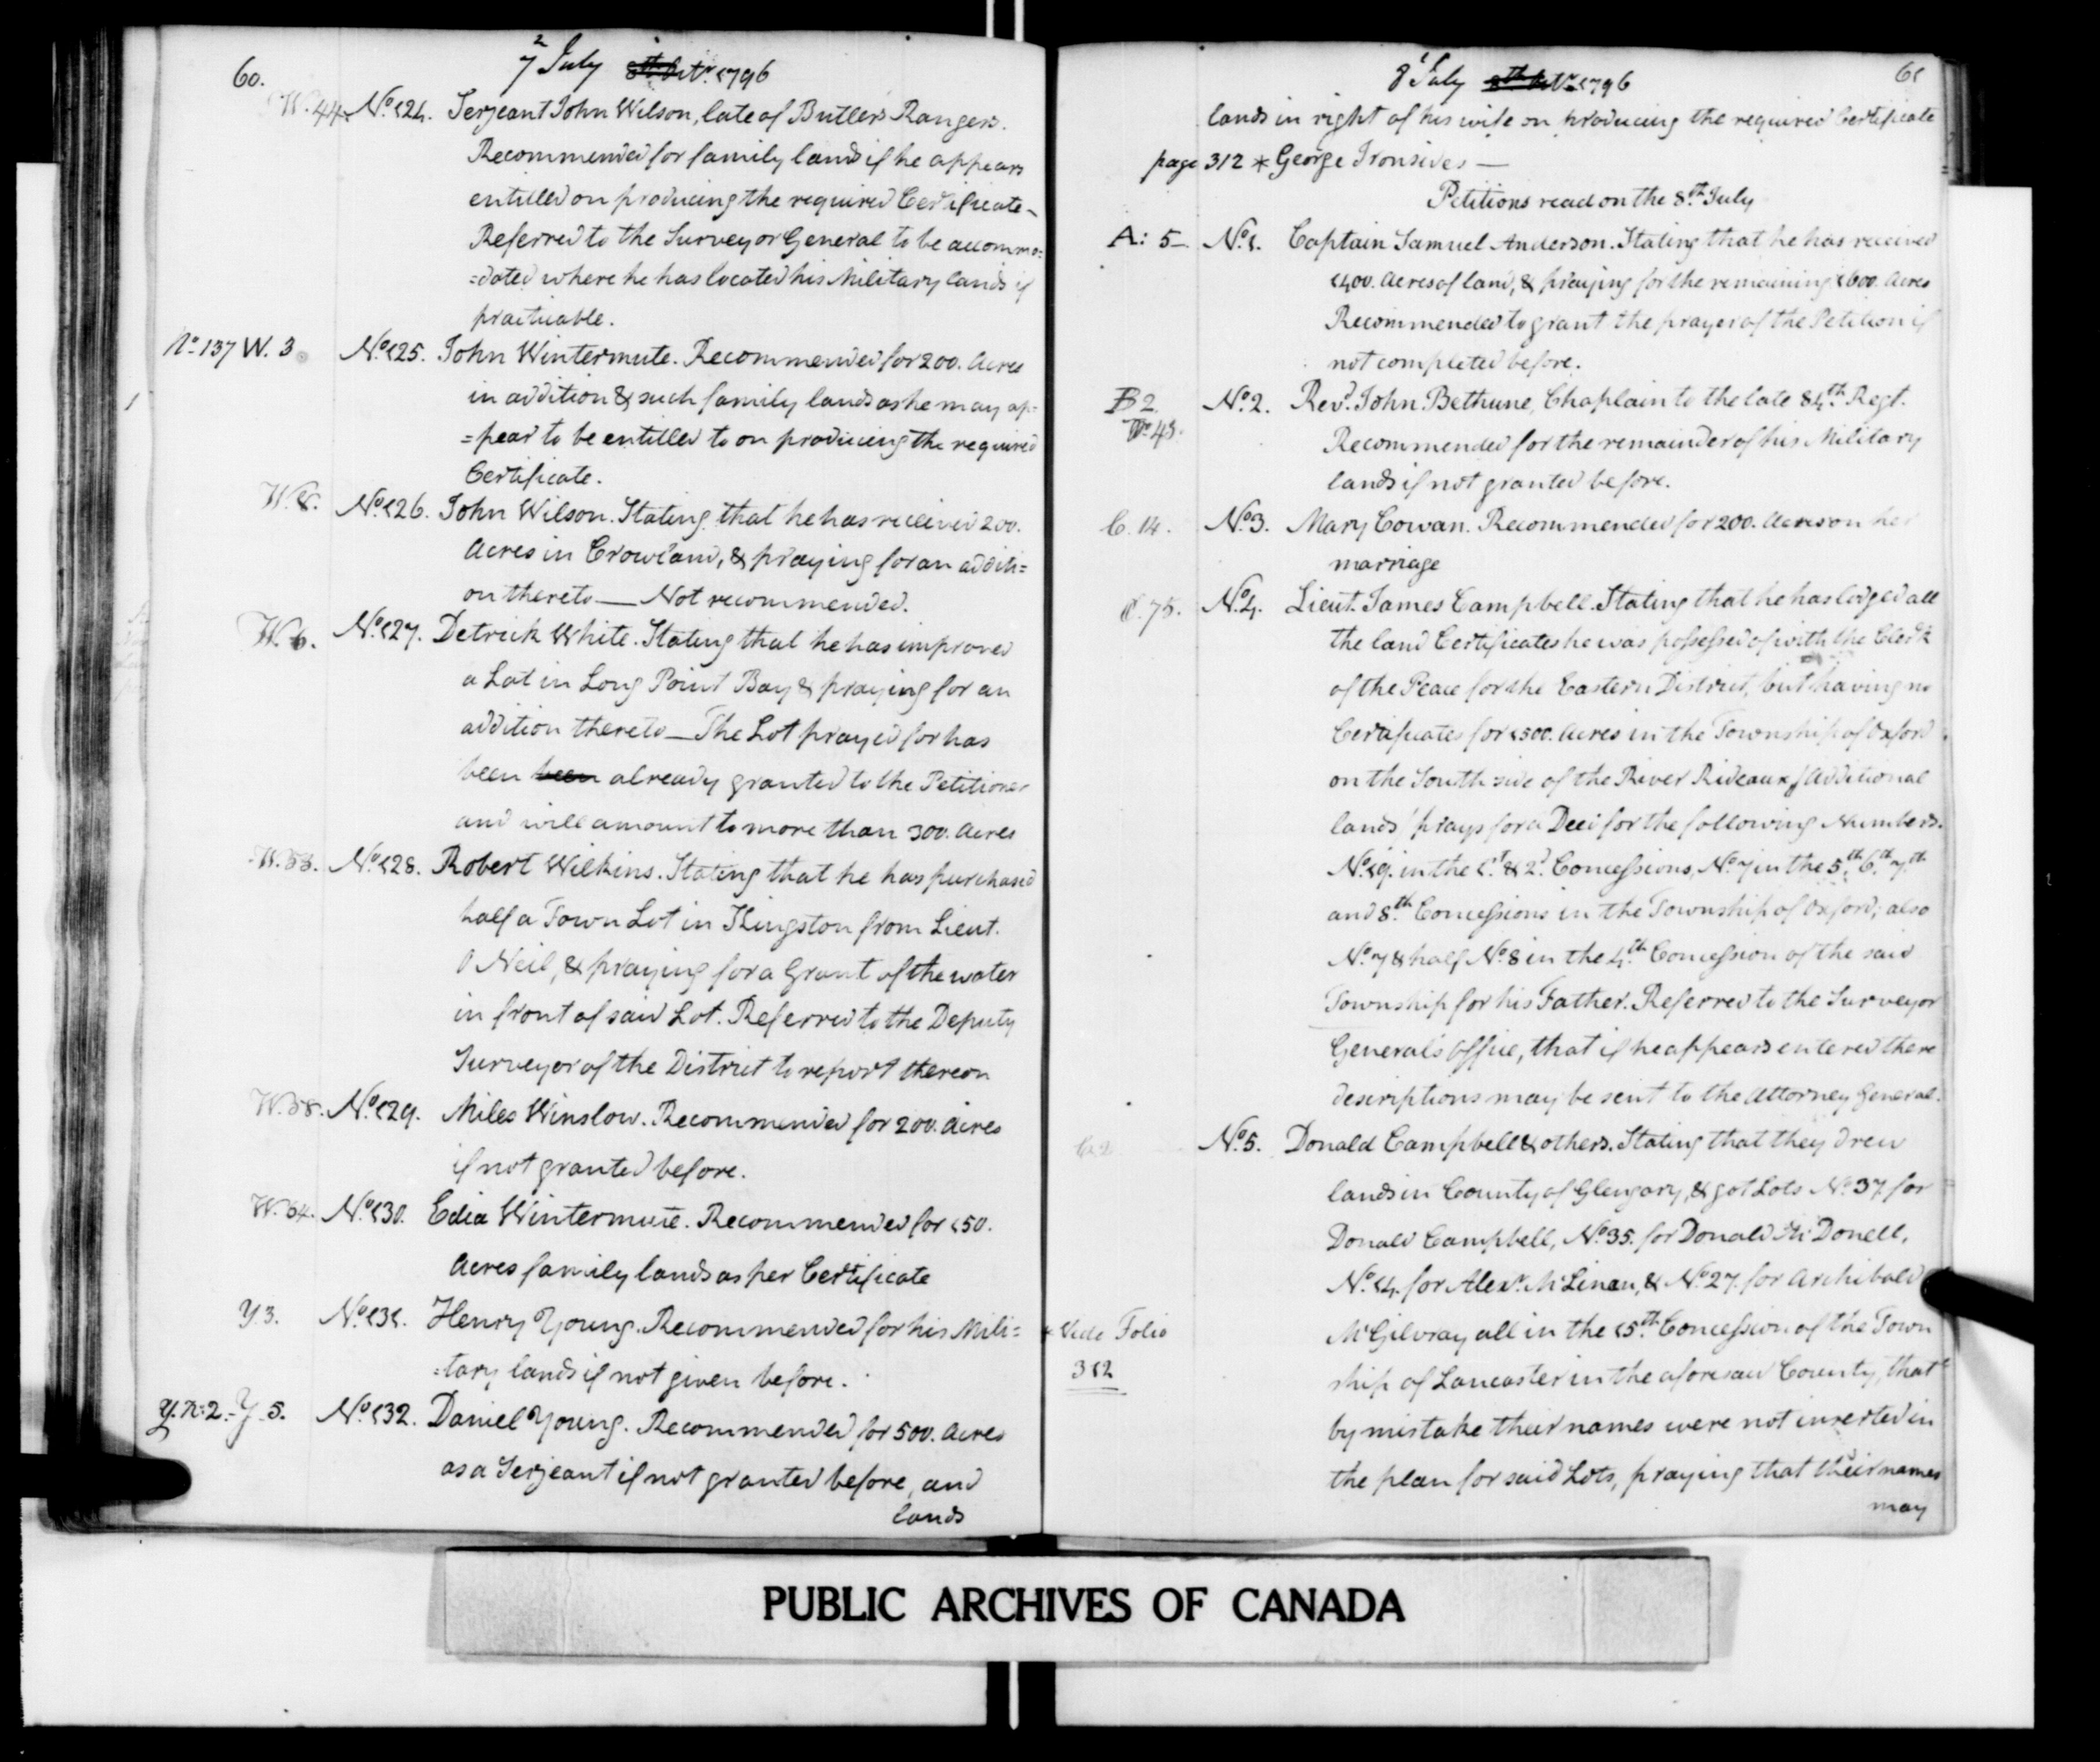 60.
7 July 8th Octr. 1796
W. 44. No. 124. Serjeant John Wilson, late of Butlers Rangers.
Recommended for family lands if he appears
entitled on producing the required Certificate –
Referred to the Surveyor General to be accommo=
=dated where he has located his Military lands if
practicable.
No. 137 W. 3. No. 125. John Wintermute. Recommended for 200. Acres
in addition & such family lands as he may ap=
=pear to be entitled to on producing the required
Certificate.
W. 8. No. 126. John Wilson. Stating that he has received 200.
Acres in Crowland, & praying for an additi=
on thereto — Not recommended.
W. 6. No. 127. Detrick White. Stating that he has improved
a Lot in Long Point Bay & praying for an
addition thereto — The Lot prayed for has
been been already granted to the Petitioner
and will amount to more than 300. Acres
W. 53. No. 128. Robert Wilkins. Stating that he has purchased
half a Town Lot in Kingston from Lieut.
O Neil, & praying for a Grant of the water
in front of said Lot. Referred to the Deputy
Surveyor of the District to report thereon
W. 58. No. 129. Miles Winslow. Recommended for 200. Acres
if not granted before.
W. 54. No. 130. Edia Wintermute. Recommended for 150.
Acres family lands as per Certificate
Y. 3. No. 131. Henry Young. Recommended for his Mili=
=tary lands if not given before.
Y. No: 2 - Y. 5. No. 132. Daniel Young. Recommended for 500. Acres
as a Serjeant if not granted before, and
lands
8 July 8th Octr. 1796
61
lands in right of his wife on producing the required Certificate
page 312 * George Ironsides —
Petitions read on the 8th July
A: 5 — No. 1. Captain Samuel Anderson. Stating that he has received
1400. Acres of land, & praying for the remaining 1600. Acres
Recommended to grant the prayer of the Petition if
not completed before.
B 2. No. 2. Revd. John Bethune, Chaplain to the late 84th. Regt.
Recommended for the remainder of his Military
lands if not granted before.
C. 14. No. 3. Mary Cowan. Recommended for 200. Acres on her
marriage
C. 75. No. 4. Lieut. James Campbell. Stating that he has lodged all
the land Certificates he was possessed of with the Clerk
of the Peace for the Eastern District, but having no
Certificates for 1500. Acres in the Township of Oxford
on the South side of the River Rideaux, (Additional
lands) prays for a Deed for the following Numbers.
No. 19. in the 1st. & 2d. Concessions, No. 7 in the 5th. 6th. 7th
and 8th. Concessions in the Township of Oxford; also
No. 7 & half No. 8 in the 4th. Concession of the said
Township for his Father. Referred to the Surveyor
General's Office, that if he appears entered there
descriptions may be sent to the Attorney General.
No. 5. Donald Campbell & others. Stating that they drew
lands in County of Glengary, & got Lots No. 37. for
Donald Campbell, No. 35. for Donald McDonell,
No. 14. for Alexr. McLinan, & No. 27. for Archibald
* Vide Folio
312
McGilvray all in the 15th. Concession of the Town
ship of Lancaster in the aforesaid County, that
by mistake their names were not inserted in
the plan for said Lots, praying that their names
may
PUBLIC ARCHIVES OF CANADA